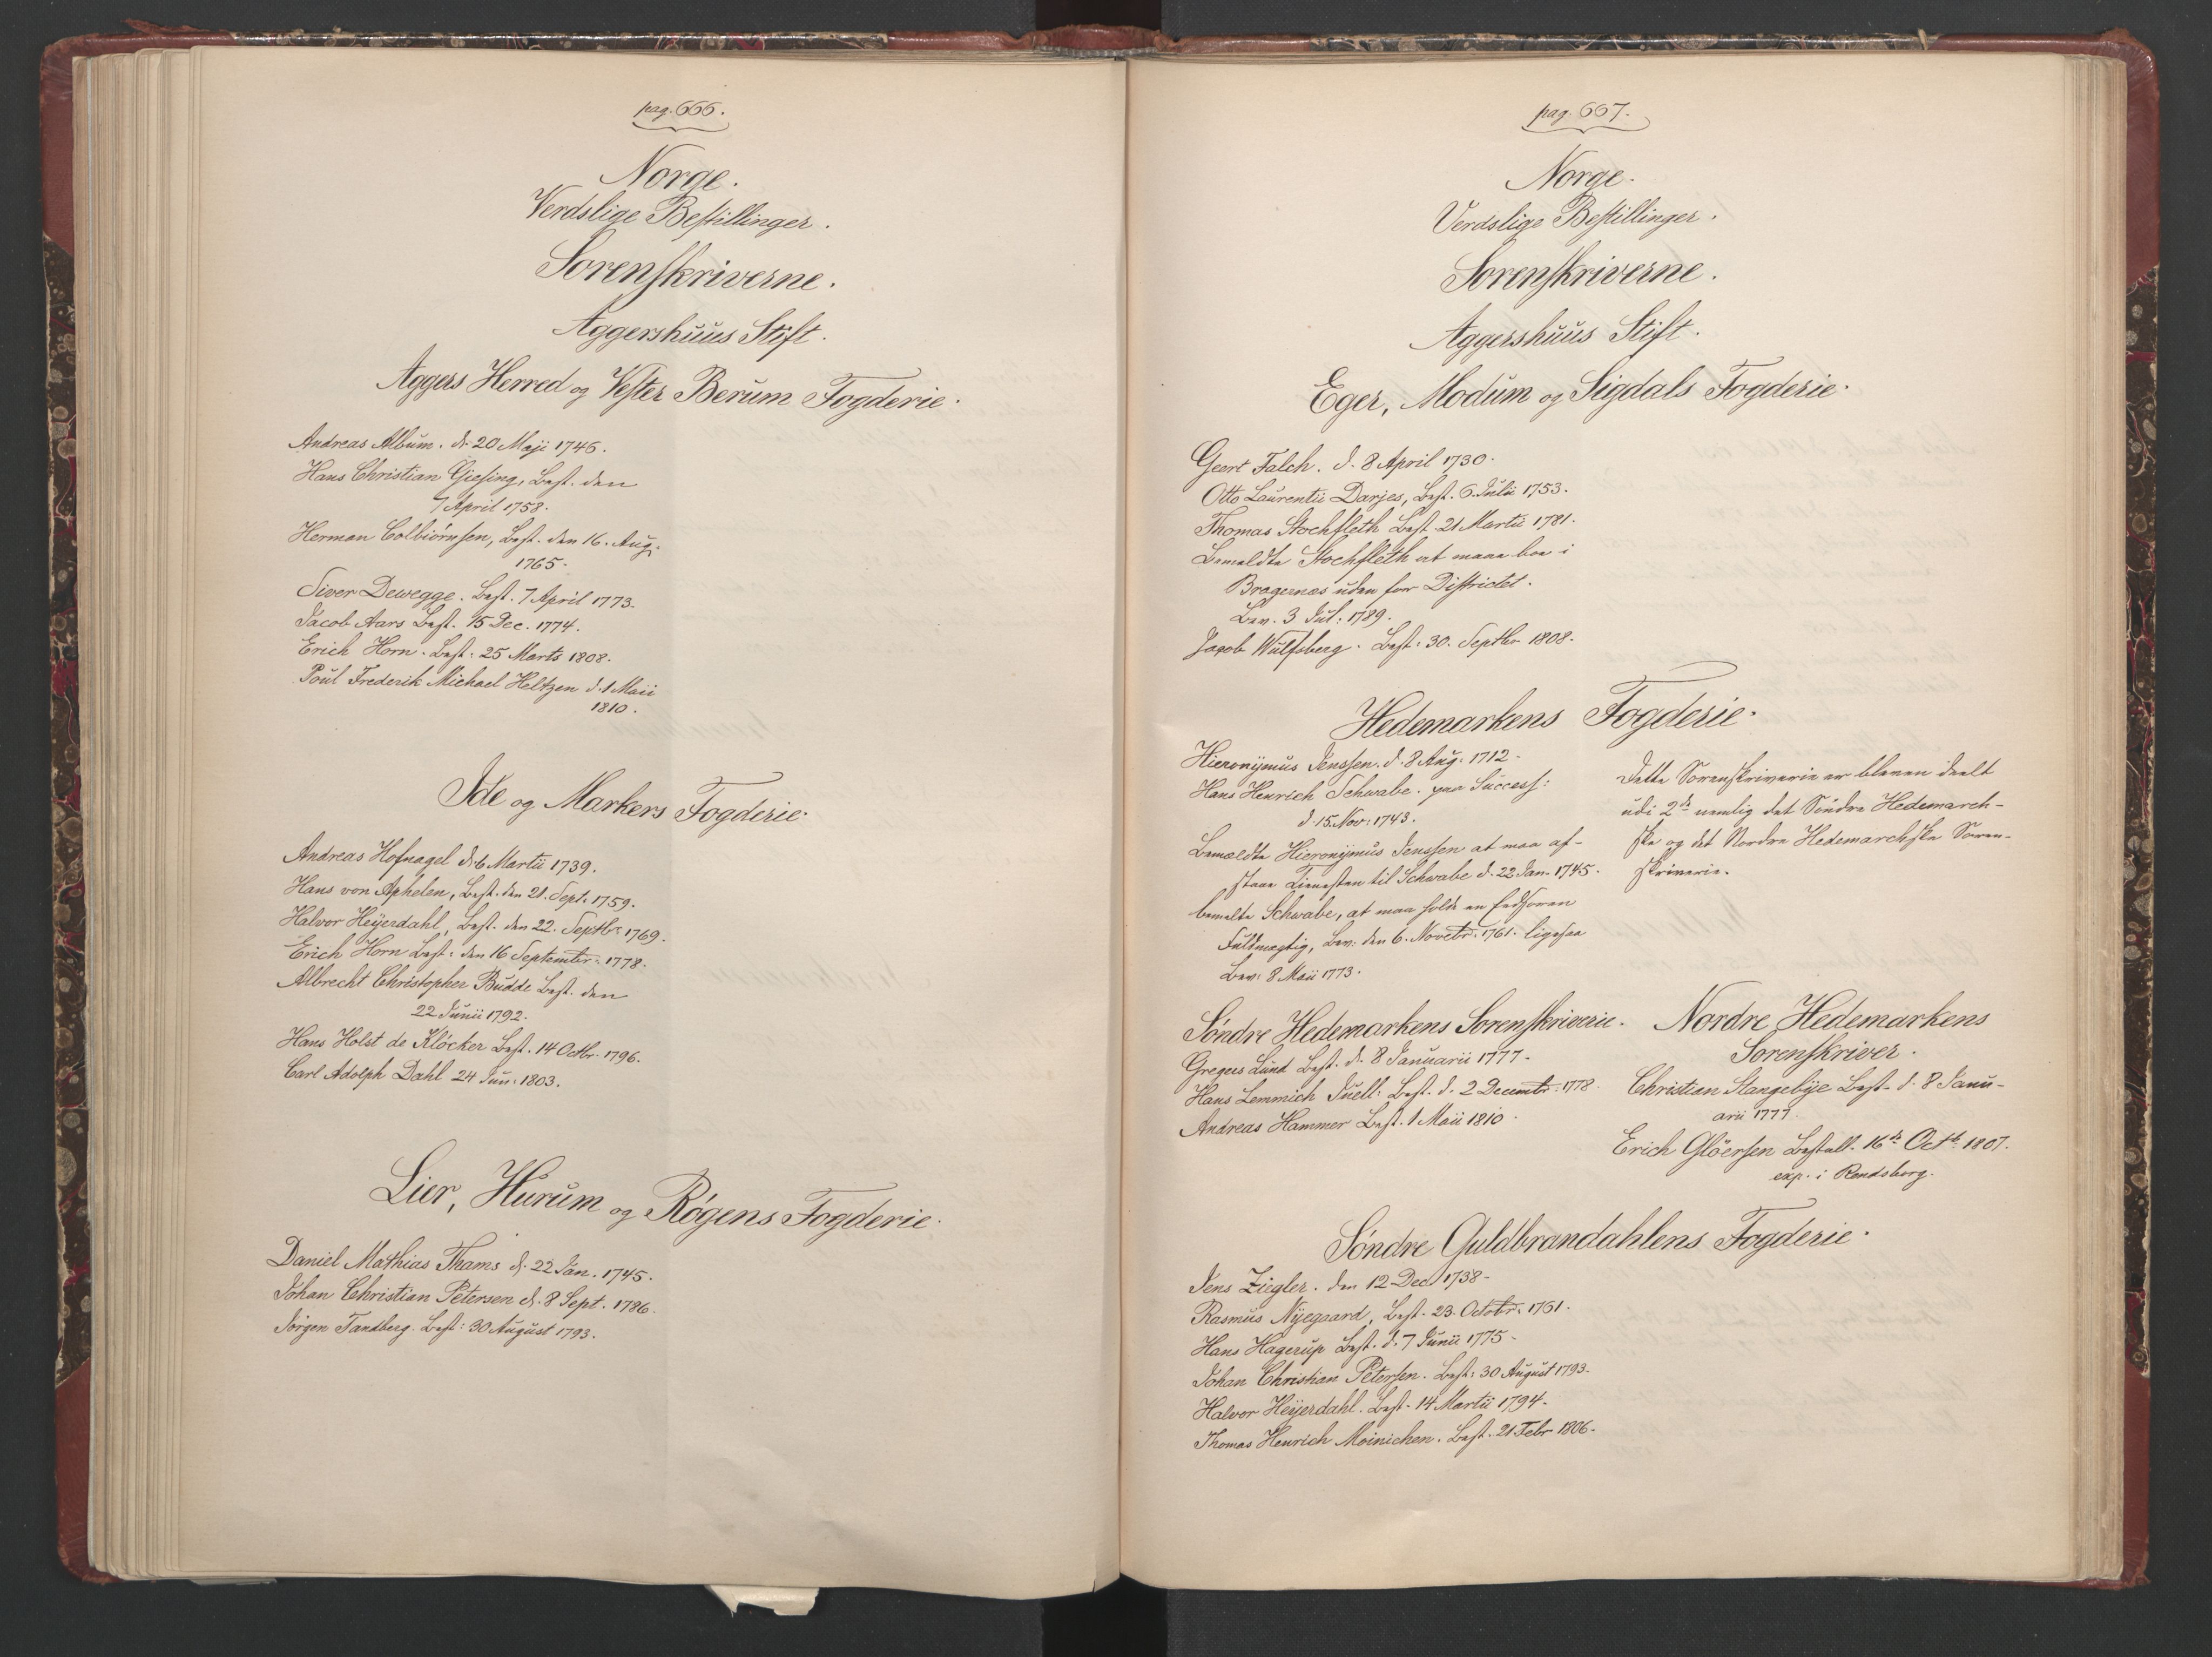 pag. 666.
Norge.
Verdslige Bestillinger.
Sorenskriverne.
Aggershuus Stift.
Aggers Herred og Vester Berum Fogderie.
Andreas Album. d. 20 Maji 1746.
Hans Christian Giesing, Best. den
7 April 1758.
Herman Colbiørnsen, Best. den 16. Aug:
1765.
Siver Dewegge. Best. 7 April 1773.
Jacob Aars Best. 15 Dec. 1774.
Erich Horn. Best: 25 Marts 1808.
Poul Frederik Michael Heltzen d. 1 Maii
1810.
Ide og Markers Fogderie.
Andreas Hofnagel d. 6 Martii 1739.
Hans von Aphelen, Best. den 21. Sept. 1759.
Halvor Heÿerdahl, Best. den 22. Septbr. 1769.
Erich Horn Best: den 16 September. 1778.
Albrecht Christopher Budde Best. den
22 Junii 1792.
Hans Holst de Kløcker Best. 14 Octbr. 1796.
Carl Adolph Dahl 24 Jun: 1803.
Lier, Hurum og Røgens Fogderie.
Daniel Mathias Thams d. 22 Jan. 1745.
Johan Christian Petersen d. 8 Sept. 1786.
Jørgen Tandberg. Best: 30 August 1793.
pag. 667.
Norge.
Verdslige Bestillinger.
Sorenskriverne.
Aggershuus Stift.
Eger, Modum og Sigdals Fogderie.
Geert Falch. d. 8 April 1730.
Otto Laurentii Darjes, Best. 6. Julii 1753.
Thomas Stochfleth Best. 21 Martii 1781.
Bemeldte Stochfleth at maae boe i
Bragernæs uden for Districtet.
Bev. 3 Jul: 1789.
Jacob Wulfsberg. Best: 30. Septbr 1808.
Hedemarkens Fogderie.
Hieronijmus Jenssen. d. 8 Aug. 1712.
Hans Henrich Schwabe. paa Success:
d. 15. Nov: 1743.
Bemældte Hieronijmus Jenssen at maa af-
staae Tienesten til Schwabe d. 22 Jan. 1745.
bemelte Schwabe, at maa holde en Eedsoren
Fuldmægtig, Bev: den 6. Novebr. 1761. ligesaa
Bev: 8 Maii 1773.
Dette Sorenskriverie er bleven deelt
udi 2de nemlig det Søndre Hedemarch-
ske og det Nordre Hedemarchske Soren-
skriverie.
Søndre Hedemarkens Sorenskriverie.
Gregers Lund Best. d. 8 Januarii 1777.
Hans Lemmich Juell: Best. d. 2 Decembr. 1778.
Andreas Hammer Best. 1 Maii 1810.
Nordre Hedemarkens
Sorenskriver.
Christian Stangebÿe Best. d. 8 Janu-
arii 1777.
Erich Gløersen Bestall. 16de Octb. 1807.
exp. i Rendsborg.
Søndre Guldbrandahlens Fogderie.
Jens Ziegler. den 12 Dec. 1738.
Rasmus Nÿegaard, Best. 23. Octobr. 1761.
Hans Hagerup Best. d. 7 Junii 1775.
Johan Christian Petersen. Best: 30 August 1793.
Halvor Heÿerdahl. Best. 14 Martii 1794.
Thomas Henrich Moinichen. Best. 21 Febr 1806.